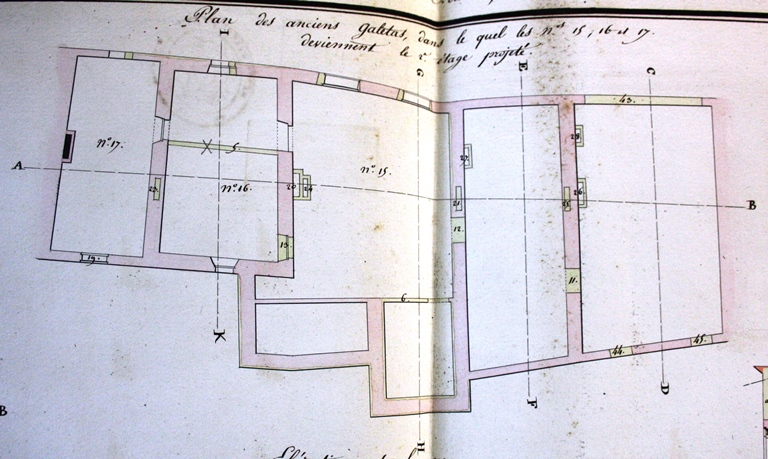 Plan des anciens galetas, dans le quel les n.os 15, 16 et 17.
deviennent le 2.e étage projeté.
I
G
E
C
43.
n.o 17.
5.
n.o 15.
23
A
n.o 16.
20
24
21
25
26
B
12.
13.
11.
19.
6.
K
44.
45.
D
F
H
B